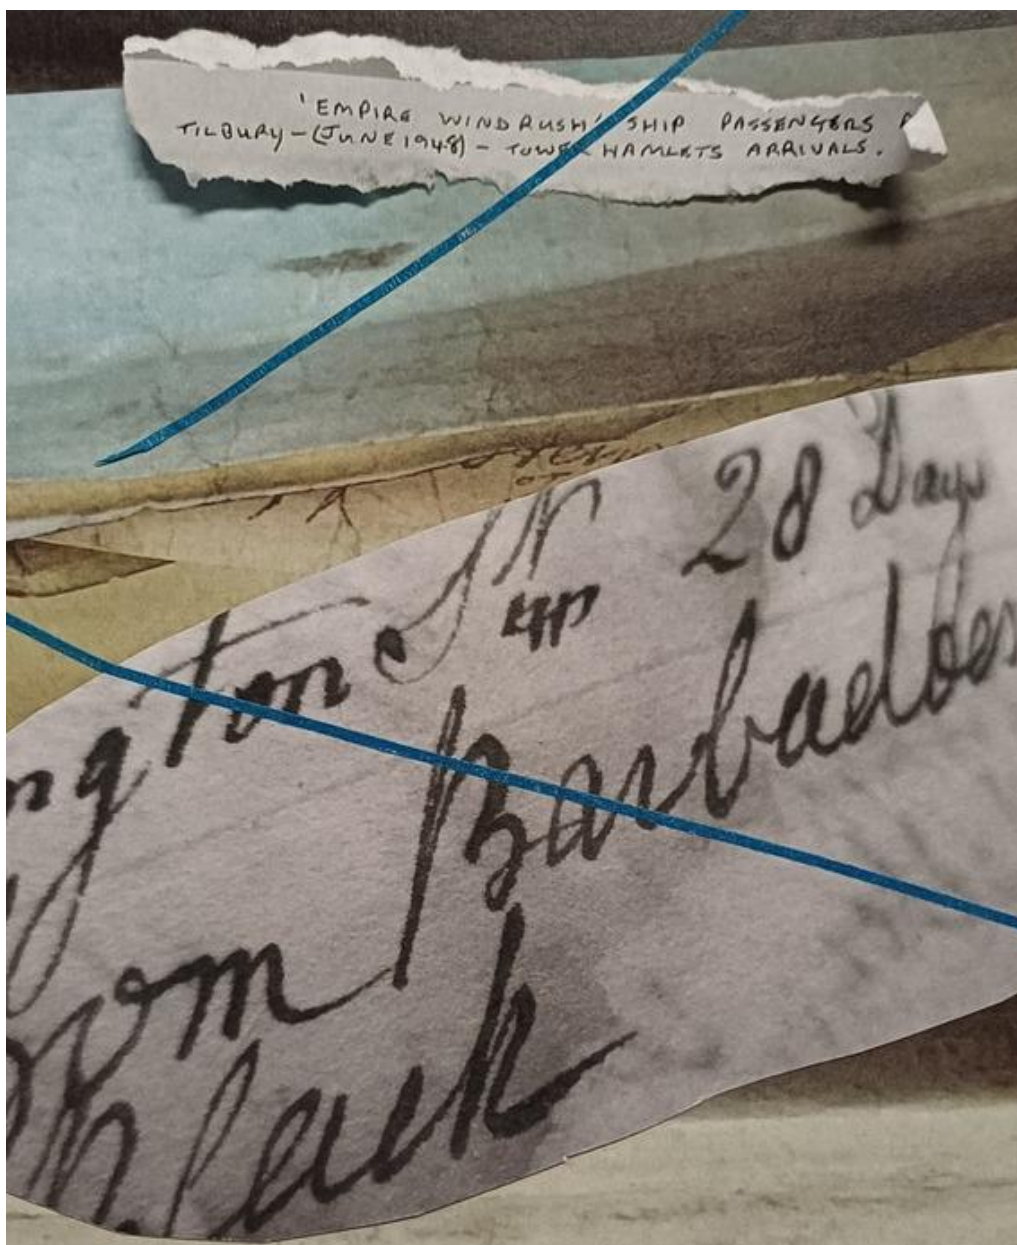 'EMPIRE WINDRUSH' SHIP PASSENGERS
TILBURY-(JUNE 1948) - TOWER HAMLETS ARRIVALS.
ngton St 28 Days
om Barbadoes
black